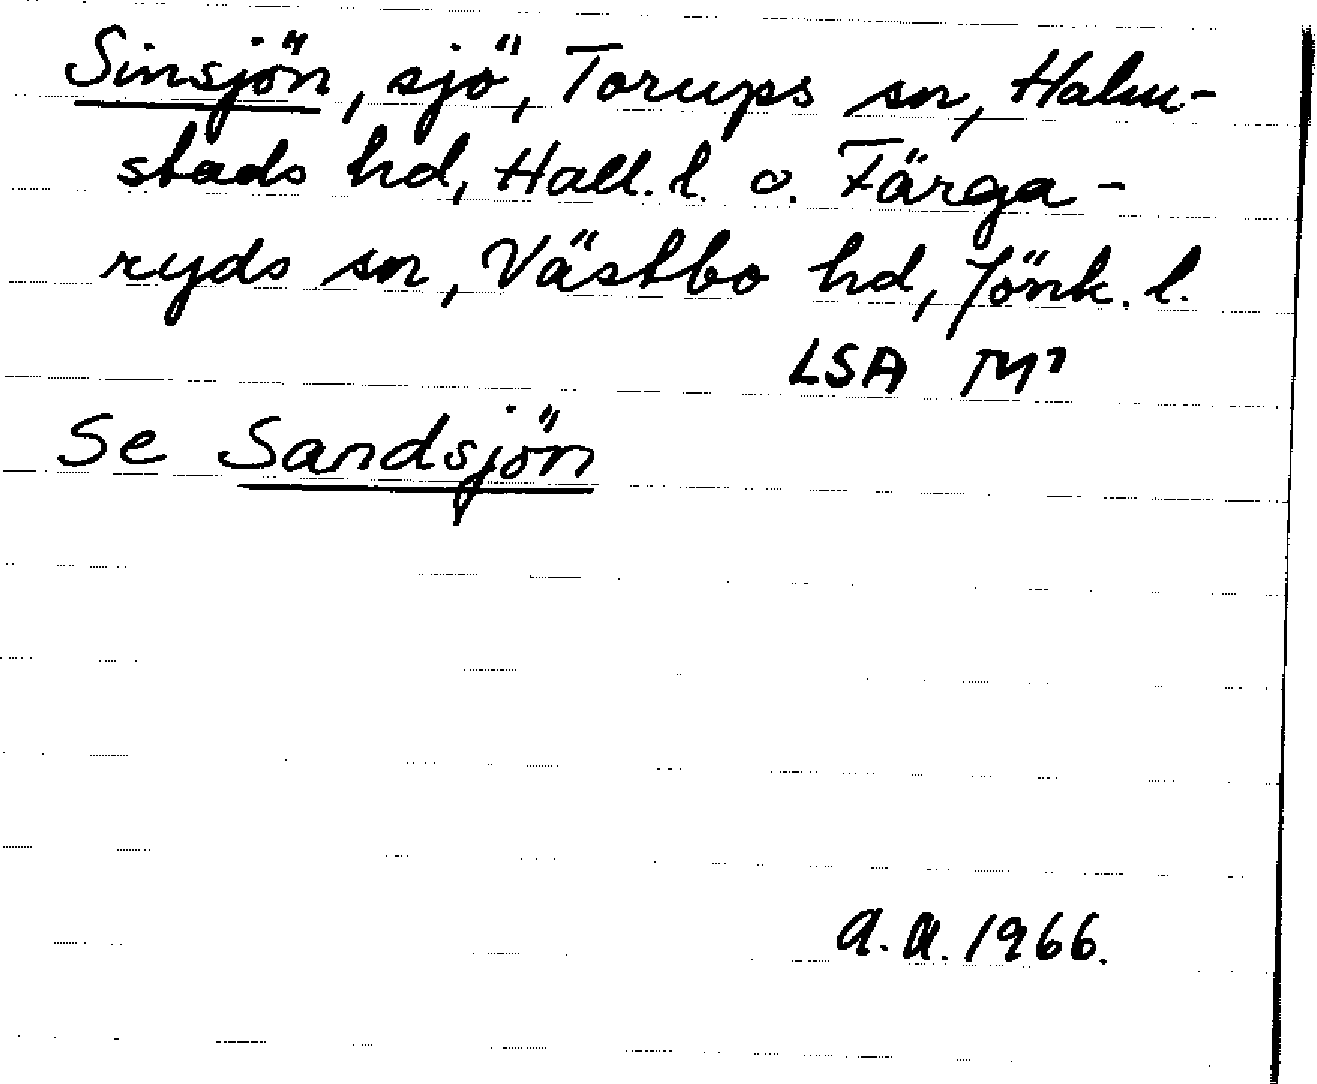 Sinsjön, sjö, Torups sn, Halm-
stads hd, Hall. l. o. Färga-
ryds sn, Västbo hd, Jönk. l.
LSA M1
Se Sandsjön
a.a. 1966.